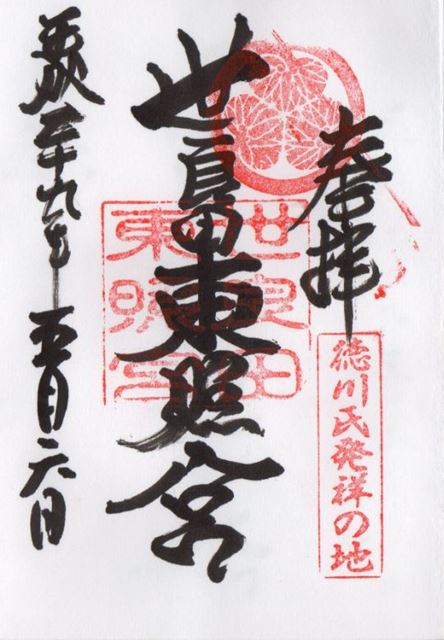 奉拝
徳川氏発祥の地
世良田東照宮
世良田
東照宮
平成二十九年五月六日